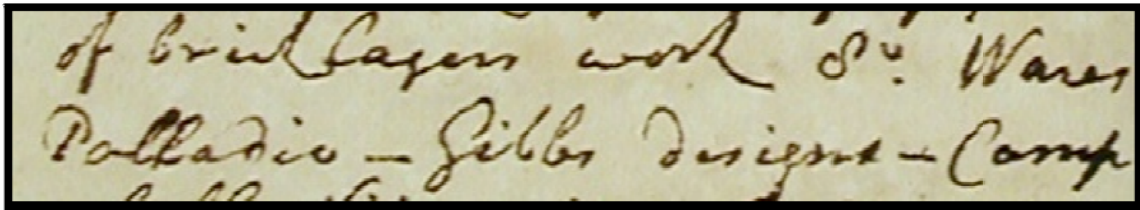 of bricklayers work 8º. Wares
Palladio – Gibbs designs – Camp